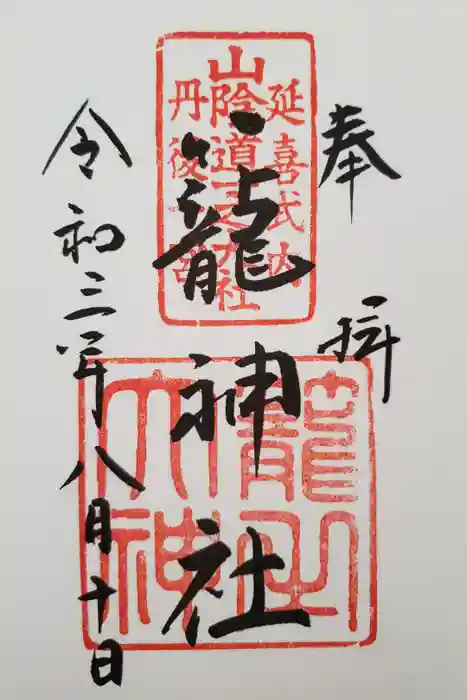 奉拝
延喜式内
山陰道一之大社
丹後一宮
籠神社
籠之
大神
令和三年八月十日